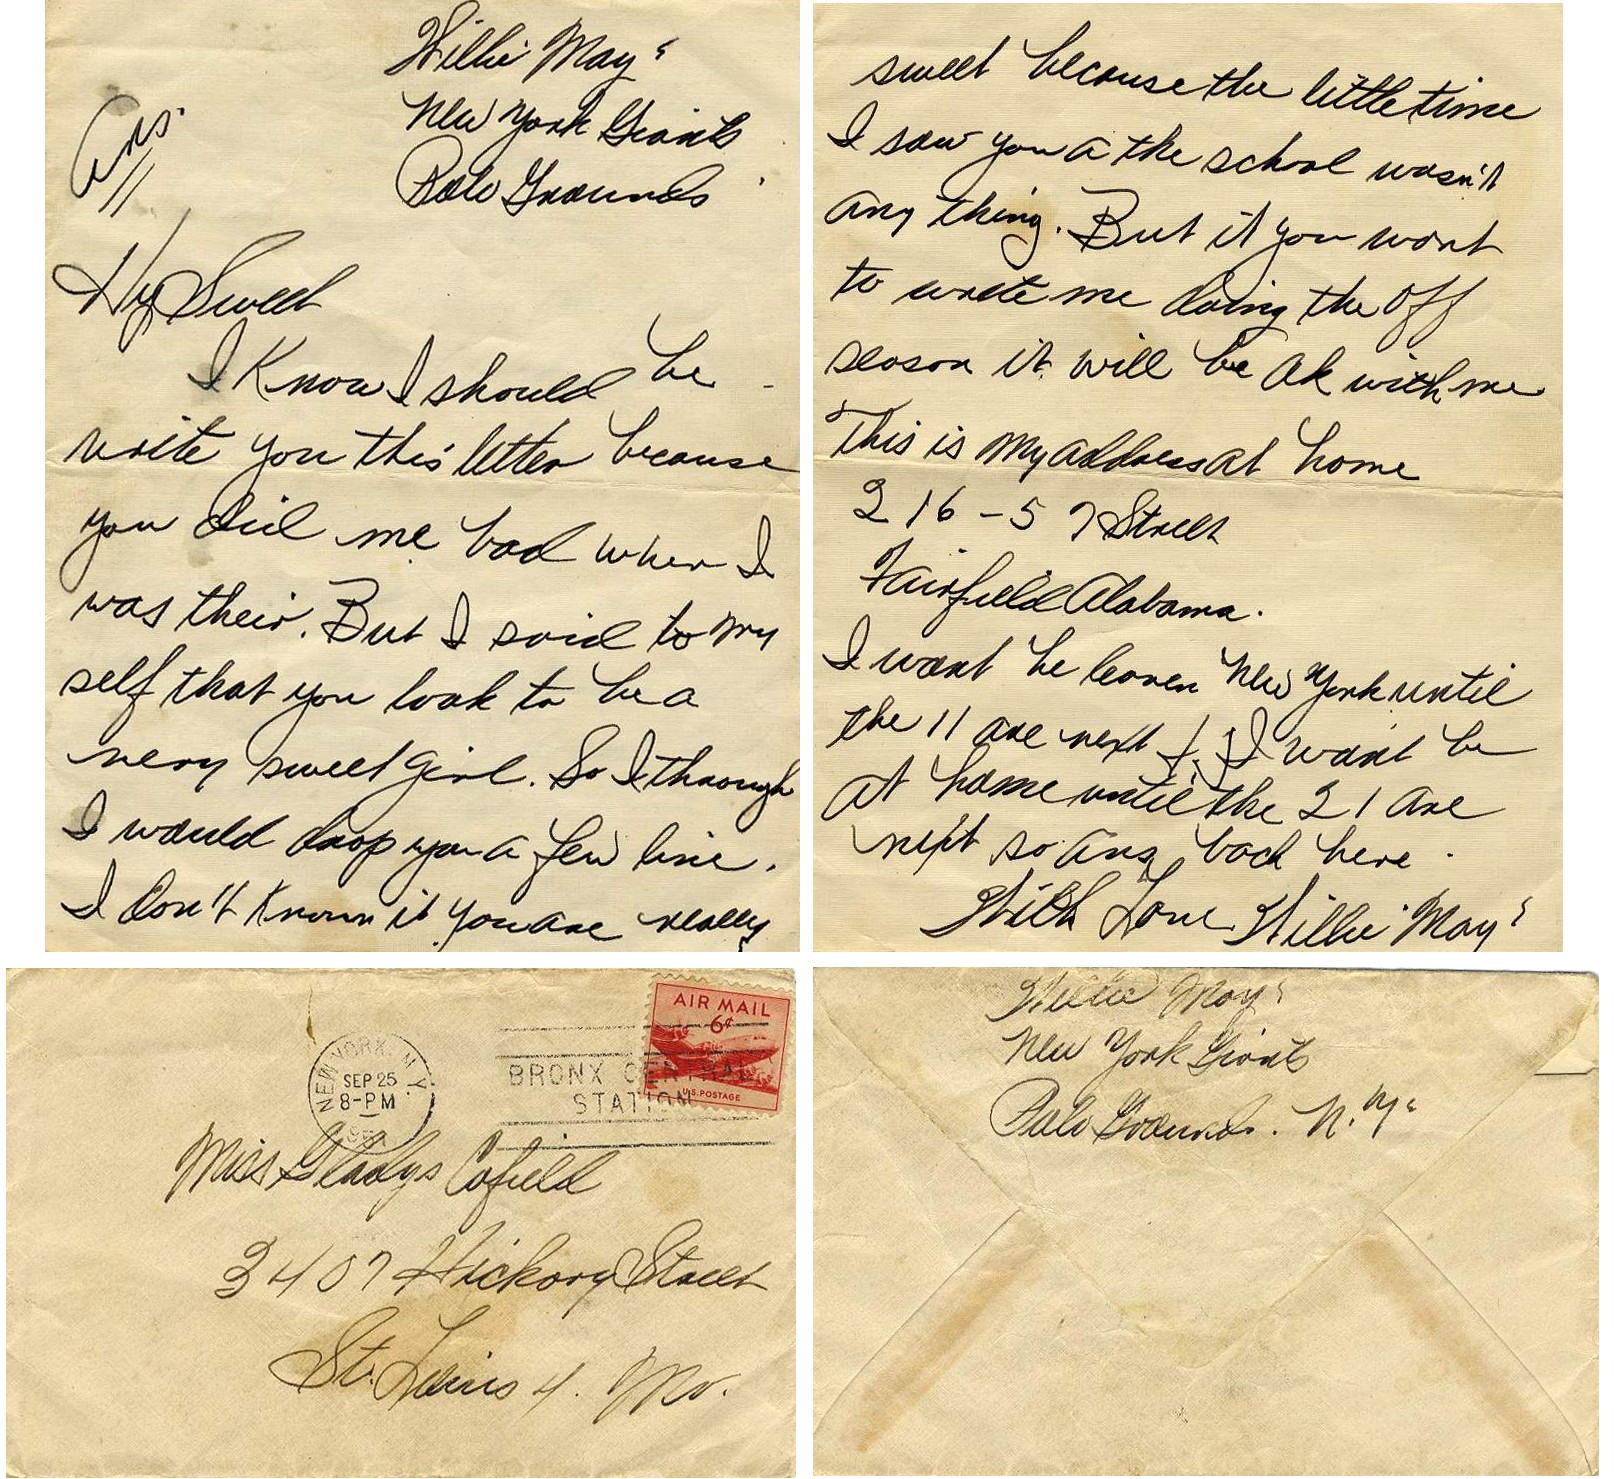 Willie May's
New York Giants
Polo Grounds
Ans.
Hy Sweet
I Know I should be
write you this letter because
you did me bad when I
was their. But I said to my
self that you look to be a
very sweet girl. So I through
I would drop you a few line.
I don't known it you are really
sweet because the little time
I saw you a the school wasn't
any thing. But it you wont
to write me doing the off
season it will be ok with me
This is my address at home
216-57 Street
Fairfield Alabama.
I want be leaven New York until
the 11 are next I want be
at home until the 21 are
next so ans back here.
With Love Willie May's
AIR MAIL
6¢
U.S. POSTAGE
NEW YORK, N.Y.
SEP 25
8-PM
BRONX CENTRAL
STATION
Miss Gladys Cofield
3407 Hickory Street
St. Louis 4. Mo.
Willie May's
New York Giants
Polo Grounds. N.Y.